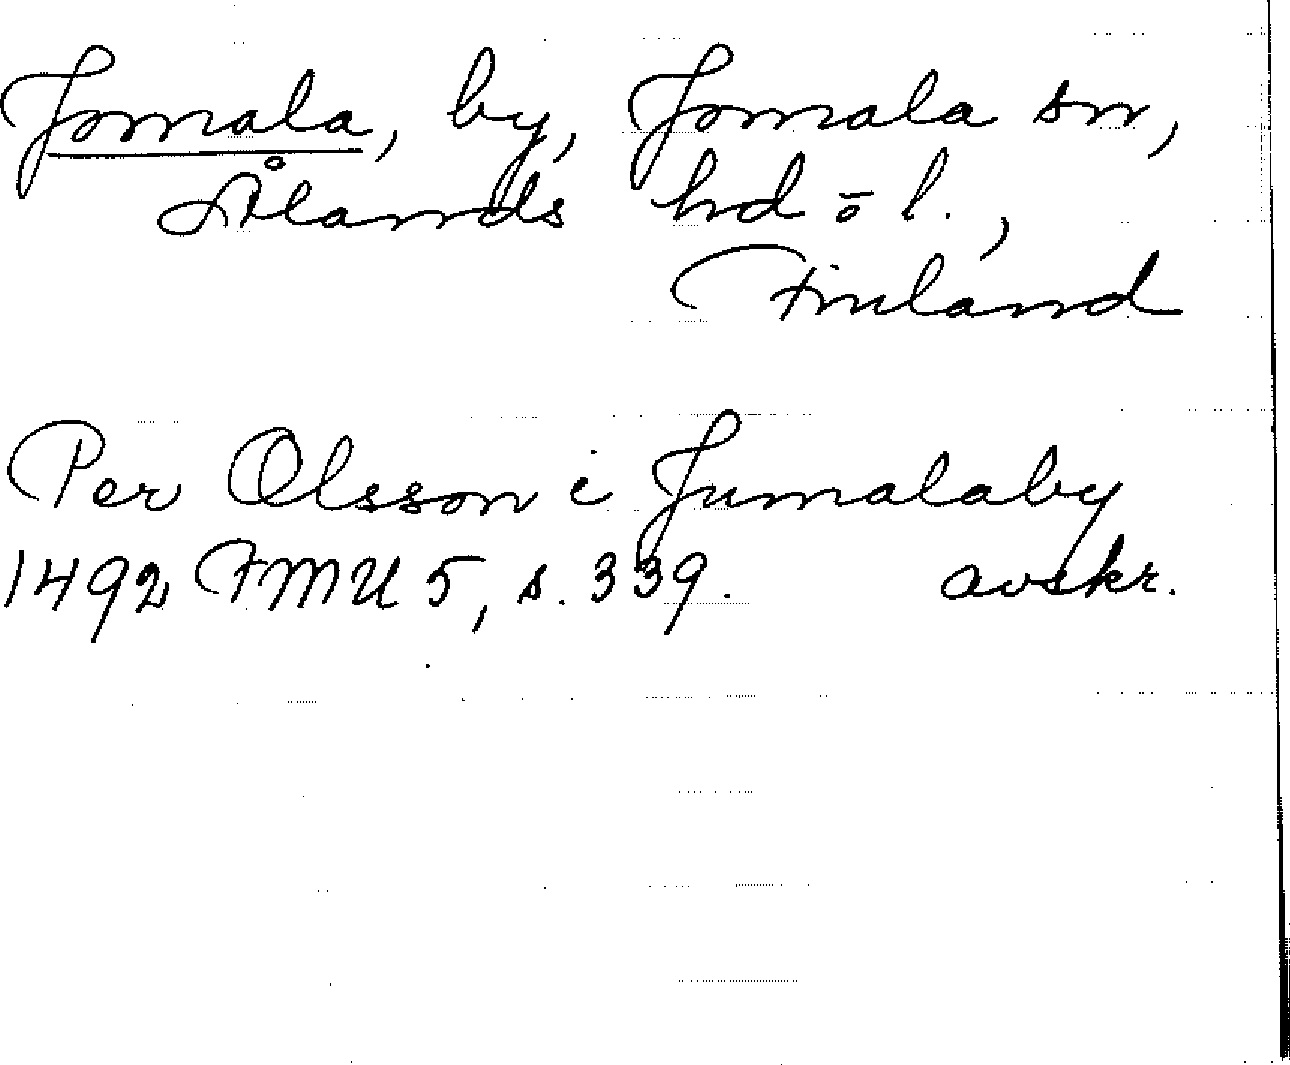 Jomala, by, Jomala sn,
Ålands hd o l.,
Finland
Per Olsson i Jumalaby
1492 FMU 5, s. 339. avskr.